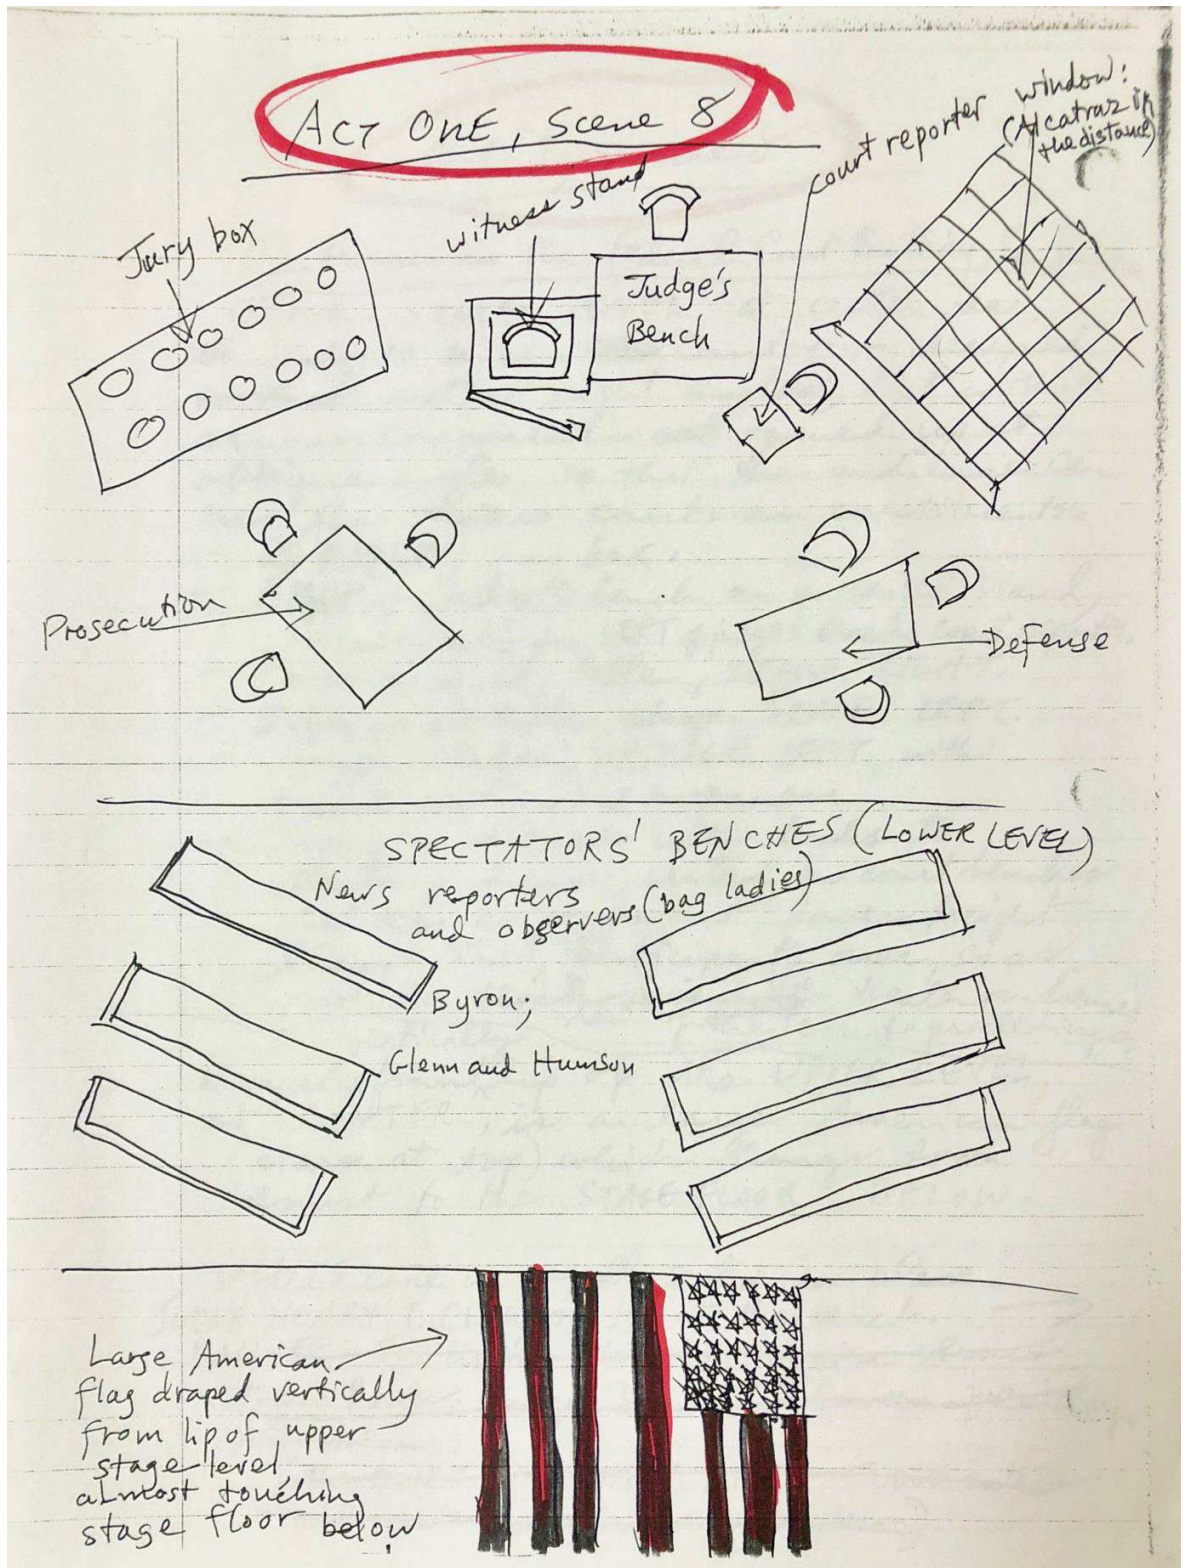 ACT ONE, Scene 8
window:
(Alcatraz in
the distance)
court reporter
witness stand
Jury box
Judge's
Bench
Prosecution
Defense
SPECTATORS' BENCHES (LOWER LEVEL)
News reporters
and observers (bag ladies)
Byron;
Glenn and Humson
Large American
flag draped vertically
from lip of upper
stage level,
almost touching
stage floor below